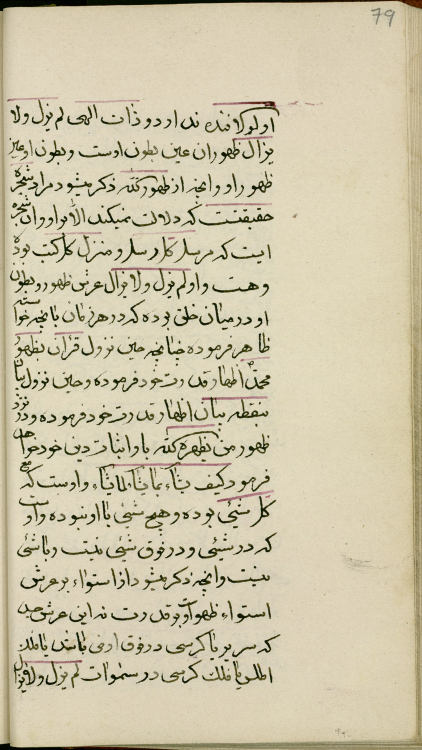 79
اولو کلا فنده ندارد و ذات الهی لم یزل ولا
یزال ظهور ان عین بطون اوست و بطون او عین
ظهور او و آنچه از ظهور الله ذکر میشود مراد شجره
حقیقتست که دلالت نمیکند الا بر او و ان شجره
ایست که مرسل کل رسل و منزل کل کتب بوده
و هست و او لم یزل ولا یزال عرش ظهور و بطون
او در میان خلق بوده که در هر زمان بانچه خواسته
ظاهر فرموده چنانچه حین نزول قران بظهور
محمد اظهار قدرت خود فرموده و حین نزول بیان
بنقطه بیان اظهار قدرت خود فرموده و در نزد
ظهور من یظهره الله باو اثبات دین خود خواهد
فرمود کیف یشاء بما یشاء لما یشاء و اوست که مع
کل شیئ بوده و هیچ شیئی با او نبوده و اوست
که در شیئی و در فوق شیئی نیست و با شئی
نیست و انچه ذکر میشود از استواء بر عرش
استواء ظهور اوست بر قدرت نه این عرش جسد
که سریر یا کرسی در فوق ارض باشد یا فلک
اطلس یا فلک کرسی در سموات لم یزل ولا یزال